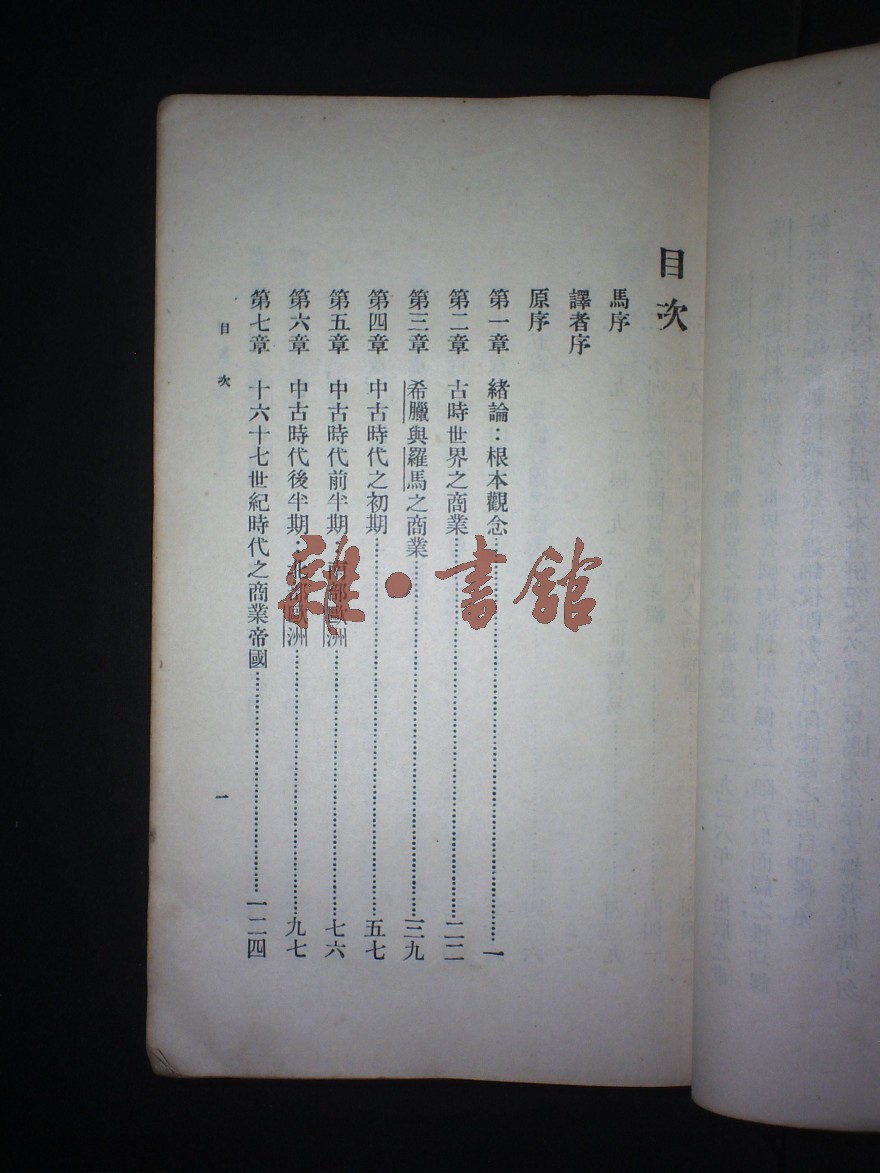 目次
馬序
譯者序
原序
第一章 緒論：根本觀念……一
第二章 古時世界之商業……二二
第三章 希臘與羅馬之商業……三九
第四章 中古時代之初期……五七
第五章 中古時代前半期：南部歐洲……七六
第六章 中古時代後半期：北部歐洲……九七
第七章 十六十七世紀時代之商業帝國……一二四
目次
一
雜·書館